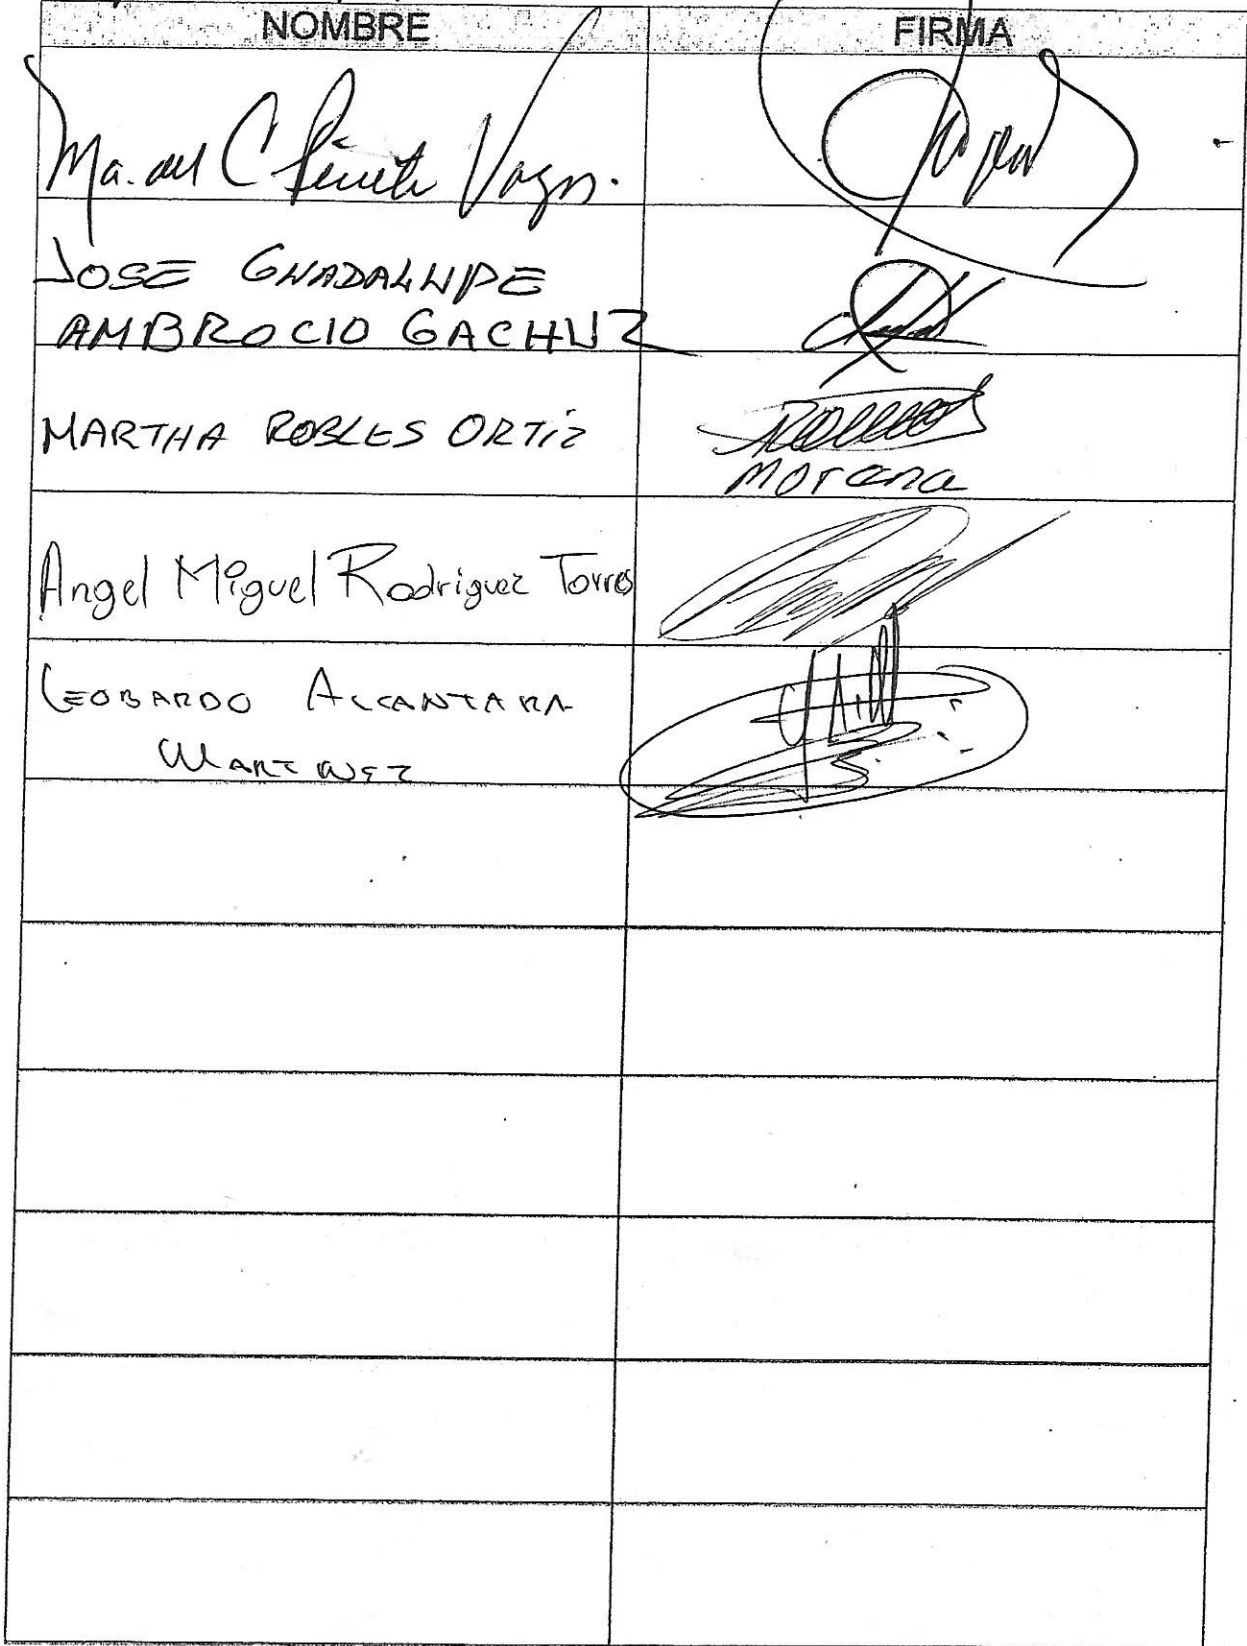 NOMBRE
FIRMA
Ma. del C
JOSE GUADALUPE
AMBROCIO GACHUZ
MARTHA ROBLES ORTIZ
Morena
Angel Miguel Rodriguez Torres
LEOBARDO ALCANTARA
MARTINEZ